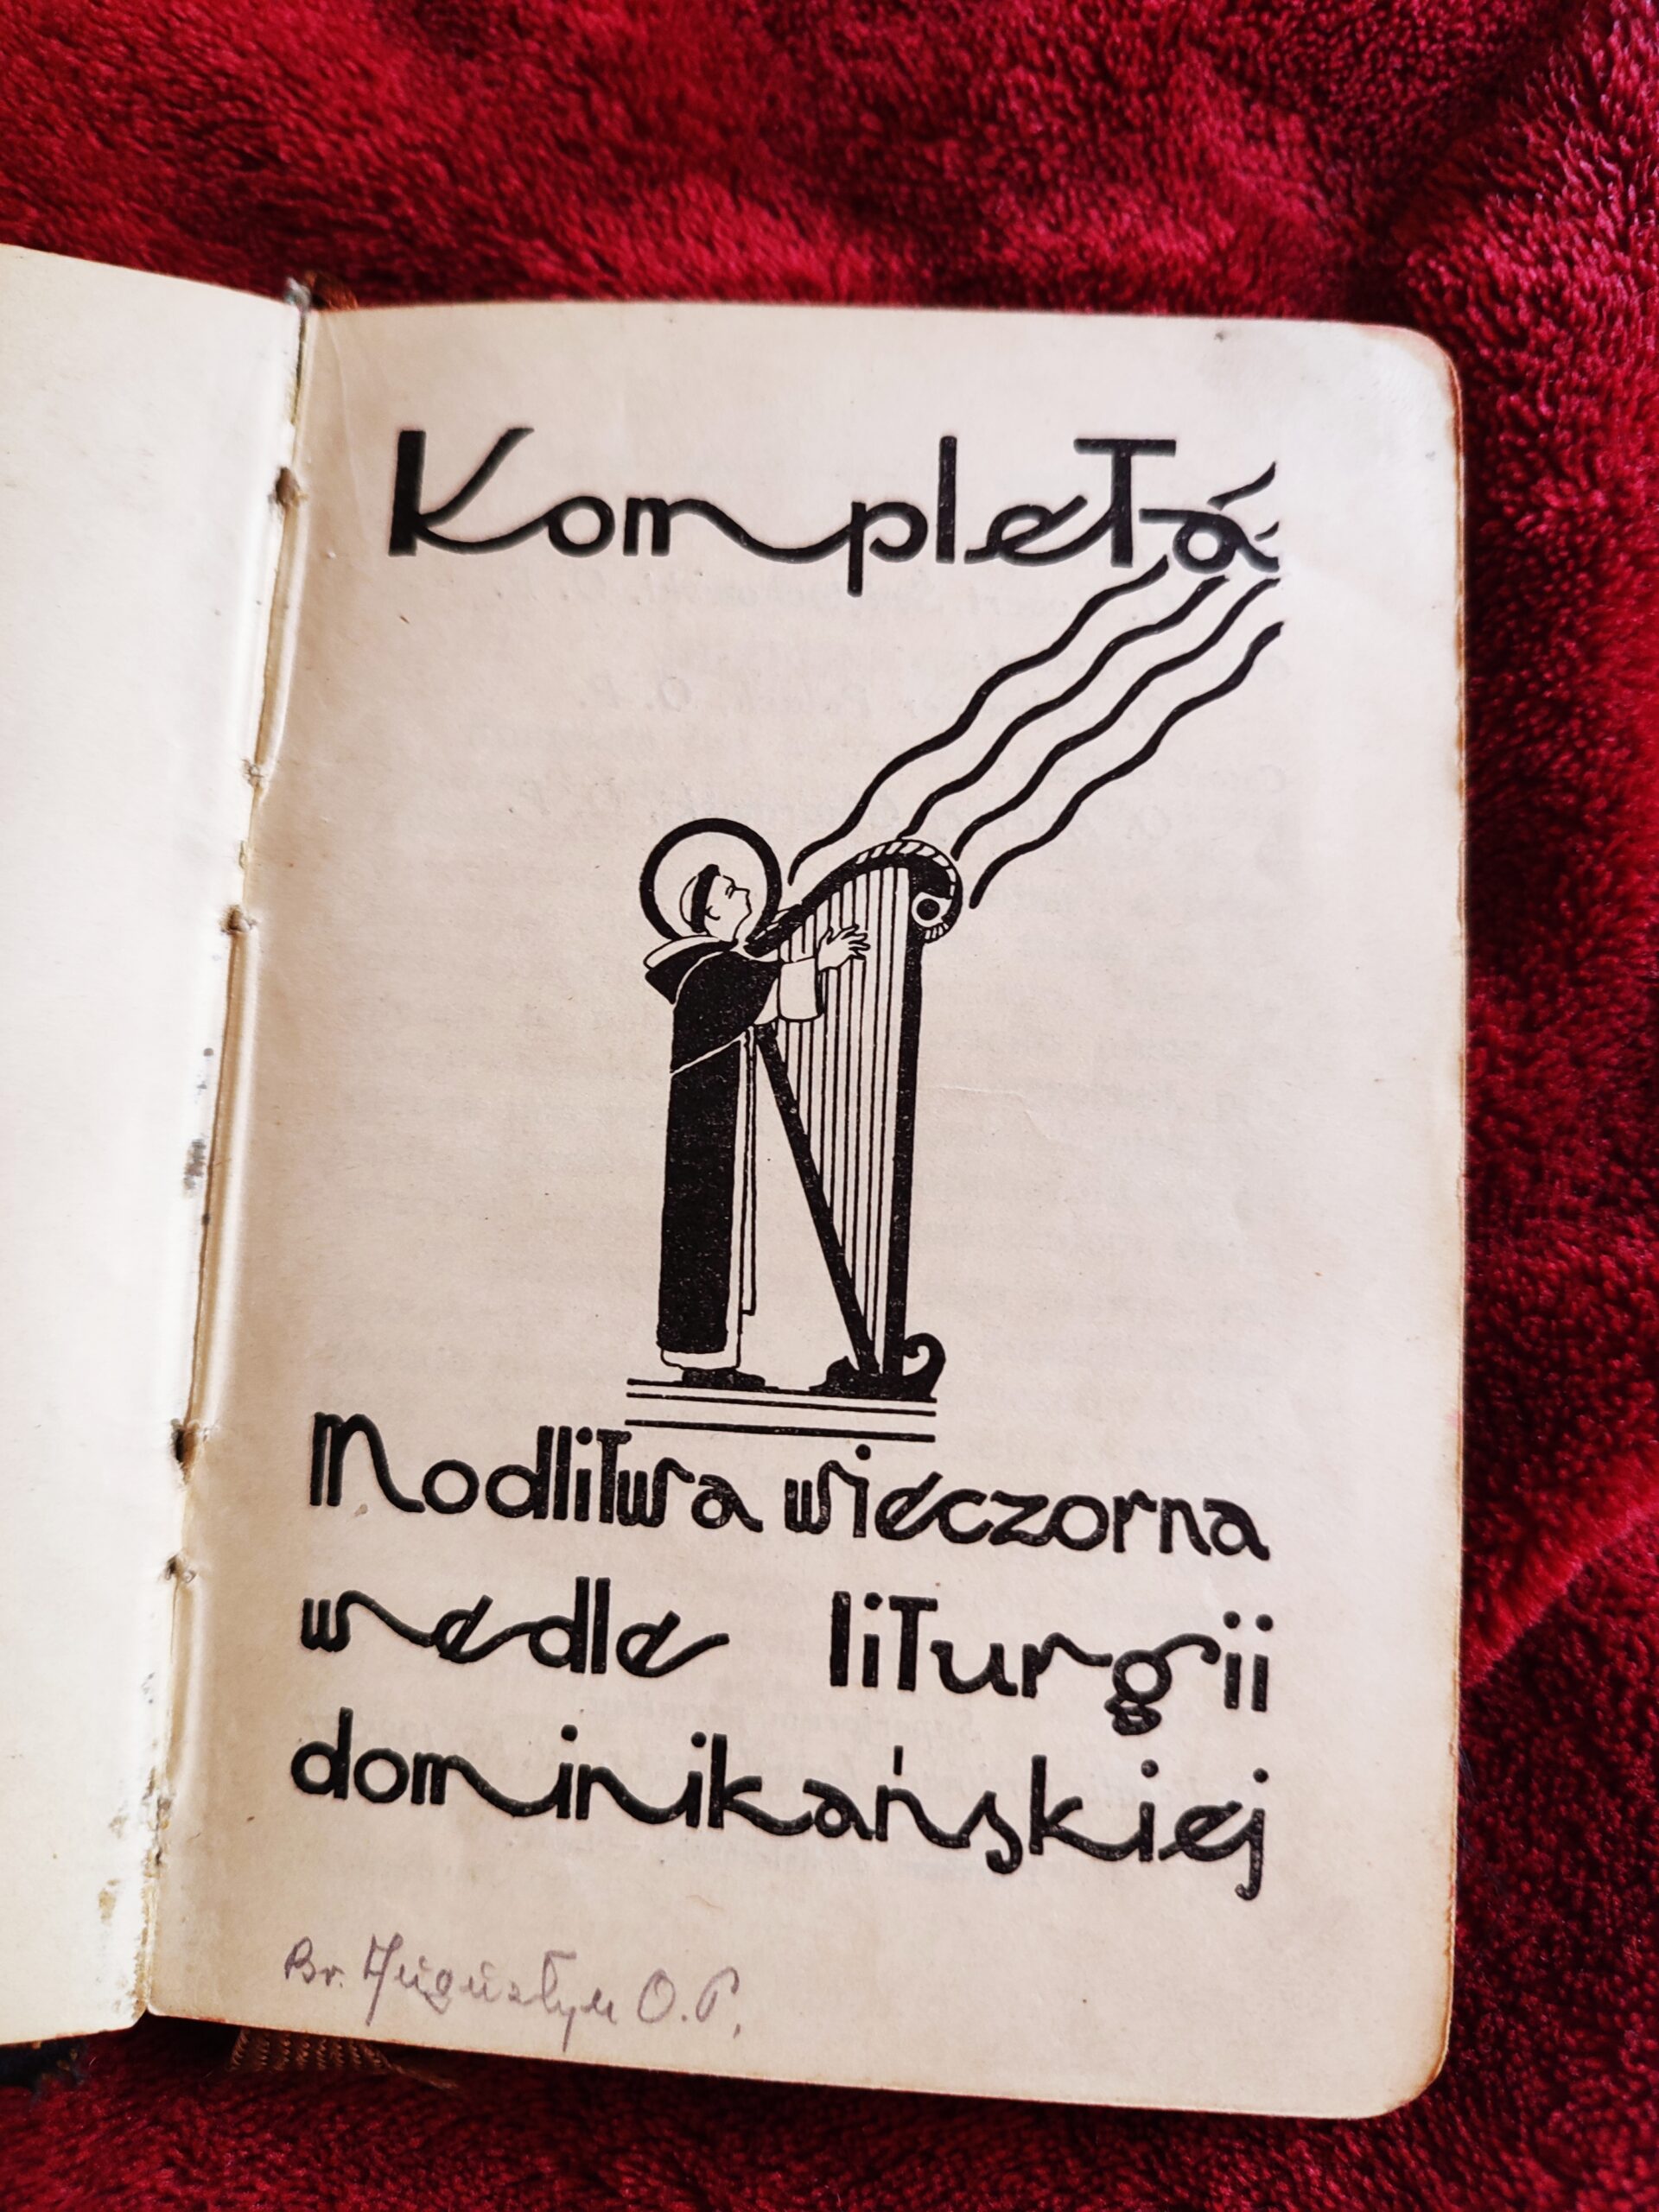 Kompleta
Modlitwa wieczorna
wedle liturgii
dominikańskiej
Br. Augustyn O.P.